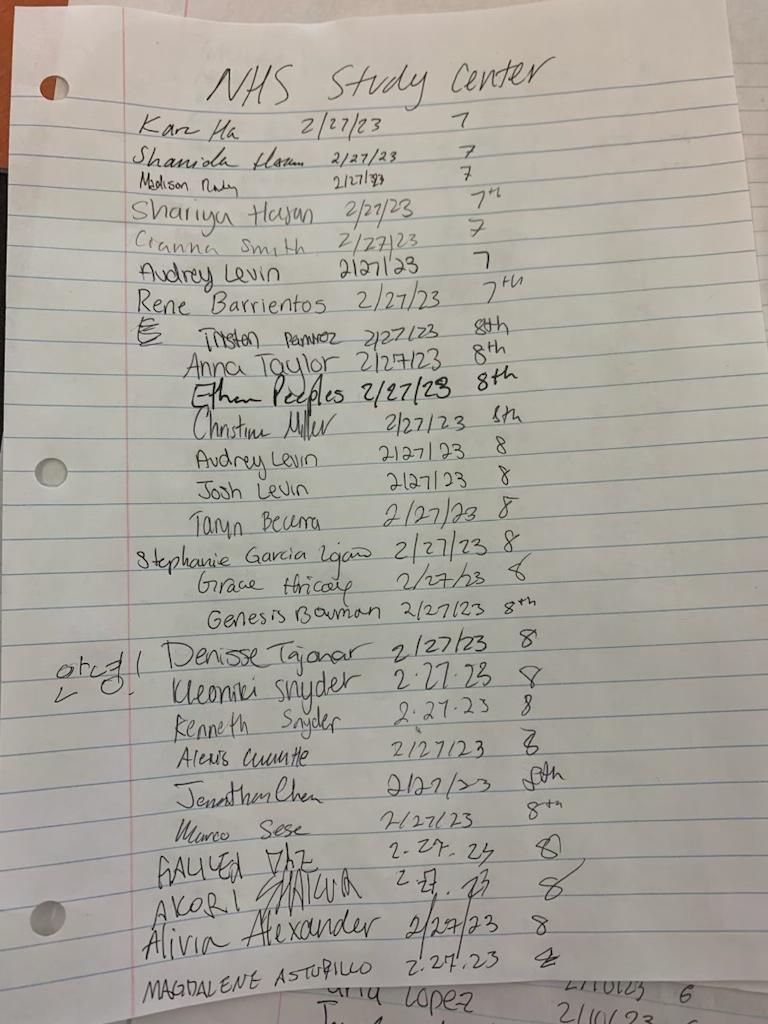 NHS Study Center
Kara Ha 2/27/23 7
Shanida 2/27/23 7
Madison 2/27/23 7
Shariya Hasan 2/27/23 7th
Cranna Smith 2/27/23 7
Audrey Levin 2/27/23 7
Rene Barrientos 2/27/23 7th
Tristen Ramirez 2/27/23 8th
Anna Taylor 2/27/23 8th
Ethan Peeples 2/27/23 8th
Christina Miller 2/27/23 8th
Audrey Levin 2/27/23 8
Josh Levin 2/27/23 8
Taryn Becerra 2/27/23 8
Stephanie Garcia 2/27/23 8
Grace 2/27/23 8
Genesis Bowman 2/27/23 8th
안녕! Denisse Tajonar 2/27/23 8
Kleoniki Snyder 2.27.23 8
Kenneth Snyder 2.27.23 8
Alexis 2/27/23 8
Jonathan Chen 2/27/23 8th
Marco Sese 2/27/23 8th
2.27.23 8
AKORI 2.27.23 8
Alivia Alexander 2/27/23 8
MAGDALENE ASTUDILLO 2.27.23
Lopez 2/10/23 6
2/10/23